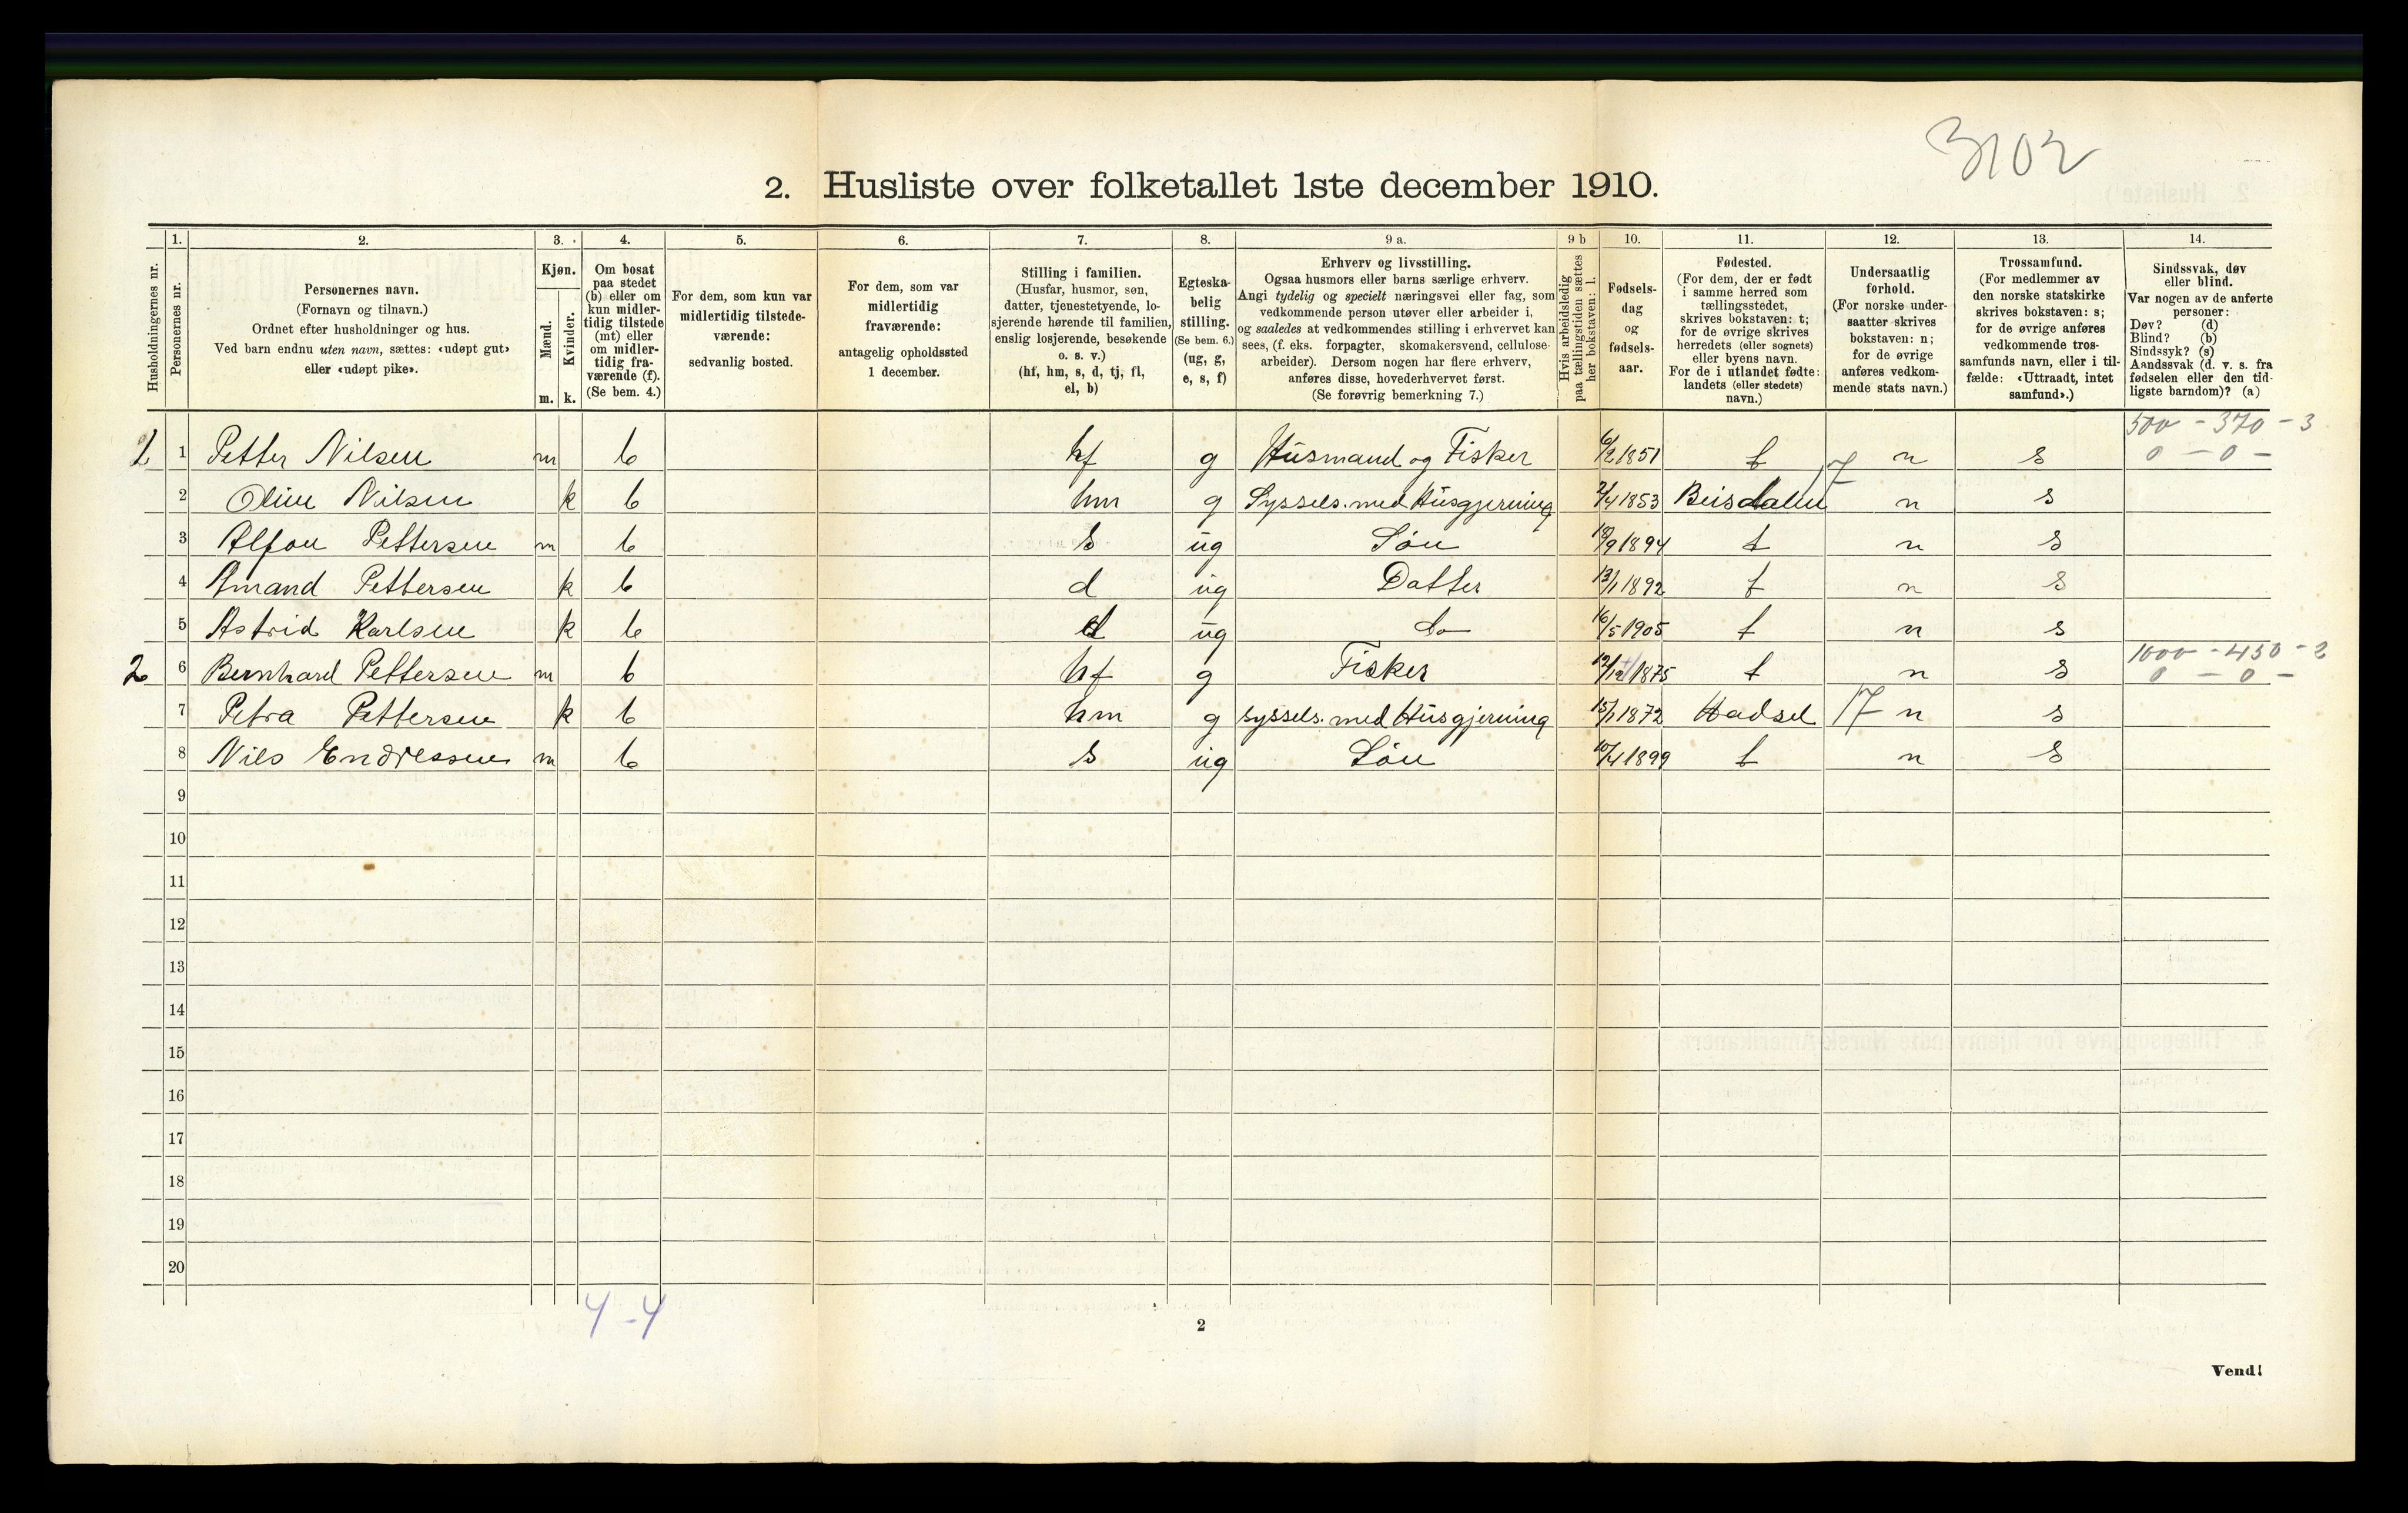 3102
2. Husliste over folketallet 1ste december 1910.
Husholdningernes nr.
1. Personernes nr.
2. Personernes navn. (Fornavn og tilnavn.) Ordnet efter husholdninger og hus. Ved barn endnu uten navn, sættes: «udøpt gut» eller «udøpt pike».
3. Kjøn. Mænd. m. Kvinder. k.
4. Om bosat paa stedet (b) eller om kun midlertidig tilstede (mt) eller om midlertidig fraværende (f). (Se bem. 4.)
5. For dem, som kun var midlertidig tilstedeværende: sedvanlig bosted.
6. For dem, som var midlertidig fraværende: antagelig opholdssted 1 december.
7. Stilling i familien. (Husfar, husmor, søn, datter, tjenestetyende, losjerende hørende til familien, enslig losjerende, besøkende o. s. v.) (hf, hm, s, d, tj, fl, el, b)
8. Egteskabelig stilling. (Se bem. 6.) (ug, g, e, s, f)
9 a. Erhverv og livsstilling. Ogsaa husmors eller barns særlige erhverv. Angi tydelig og specielt næringsvei eller fag, som vedkommende person utøver eller arbeider i, og saaledes at vedkommendes stilling i erhvervet kan sees, (f. eks. forpagter, skomakersvend, cellulosearbeider). Dersom nogen har flere erhverv, anføres disse, hovederhvervet først. (Se forøvrig bemerkning 7.)
9 b Hvis arbeidsledig paa tællingstiden sættes her bokstaven: l.
10. Fødselsdag og fødselsaar.
11. Fødested. (For dem, der er født i samme herred som tællingsstedet, skrives bokstaven: t; for de øvrige skrives herredets (eller sognets) eller byens navn. For de i utlandet fødte: landets (eller stedets) navn.)
12. Undersaatlig forhold. (For norske undersaatter skrives bokstaven: n; for de øvrige anføres vedkommende stats navn.)
13. Trossamfund. (For medlemmer av den norske statskirke skrives bokstaven: s; for de øvrige anføres vedkommende trossamfunds navn, eller i tilfælde: «Uttraadt, intet samfund».)
14. Sindssvak, døv eller blind. Var nogen av de anførte personer: Døv? (d) Blind? (b) Sindssyk? (s) Aandssvak (d. v. s. fra fødselen eller den tidligste barndom)? (a)
500 - 370 - 3
1 1 Petter Nilsen m b hf g Husmand og Fisker 6/2 1851 t n s 0 - 0 -
2 Oline Nilsen k b hm g Syssels. med Husgjerning 2/4 1853 Beisdalen 17 n s
3 Alfon Pettersen m b s ug Søn 18/9 1894 t n s
4 Amand Pettersen k b d ug Datter 13/1 1892 t n s
5 Astrid Karlsen k b d ug do 16/5 1905 t n s
1000 - 450 - 2
2 6 Bernhard Pettersen m b hf g Fisker 12/12 1875 t n s 0 - 0 -
7 Petra Pettersen k b hm g syssels. med Husgjerning 15/1 1872 Hadsel 17 n s
8 Nils Endressen m b s ug Søn 10/4 1899 t n s
9
10
11
12
13
14
15
16
17
18
19
20
4 - 4
2
Vend!